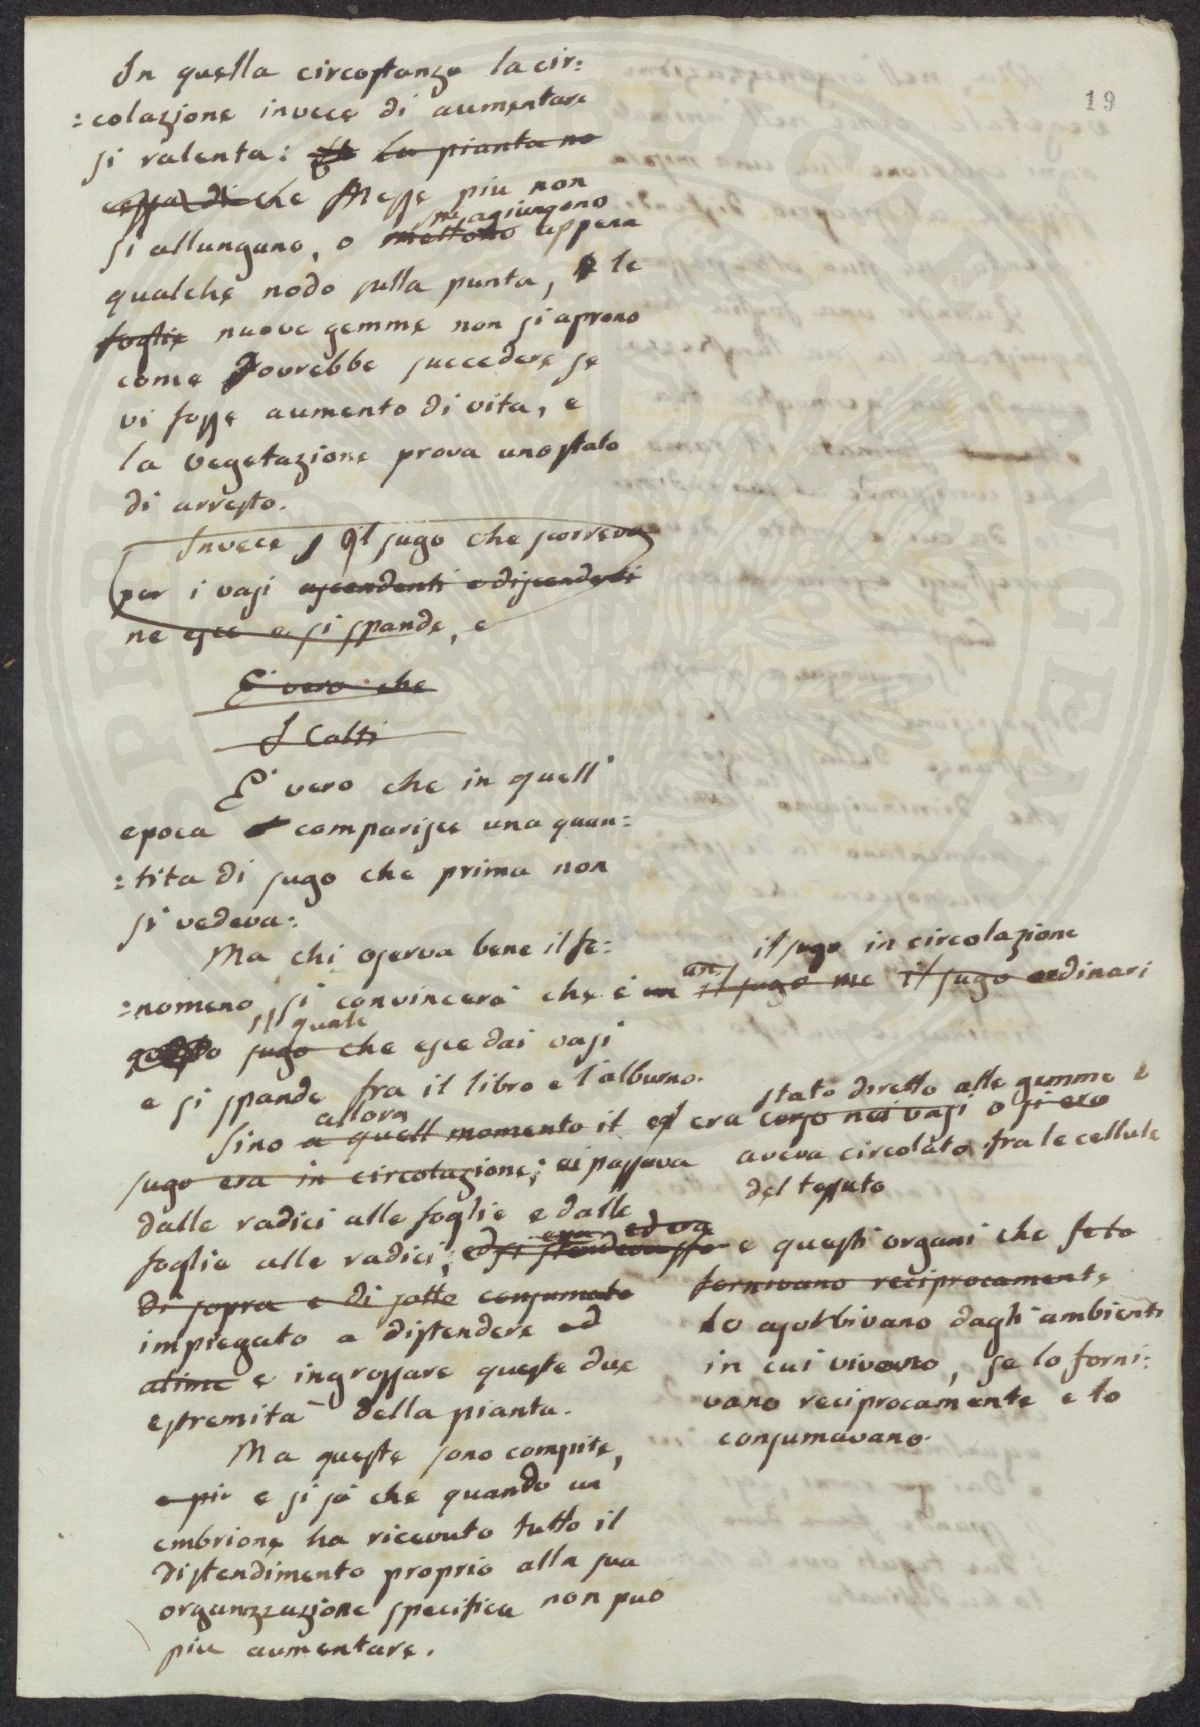 19
In quella circostanza la cir=
=colazione invece di aumentare
si ralenta: la pianta no
che Messe piu non
si allungano, o mettono appena
ne agiungono
qualche nodo sulla punta, e le
foglie nuove gemme non si aprono
come Dovrebbe succedere se
vi fosse aumento di vita, e
la vegetazione prova uno stato
di arresto.
Invece il sugo che scorreva
per i vasi ascendenti e discendenti
ne esce e si spande, e
E' vero che
I Calti
E' vero che in quell'
epoca comparisce una quan=
=tita di sugo che prima non
si vedeva:
Ma chi oserva bene il fe=
=nomeno, si convincerà che è un
il quale
questo sugo che esce dai vasi
e si spande fra il libro e l'alburno.
allora
Sino a quell momento il era
sugo era in circolazione; passava
dalle radici alle foglie e dalle
foglie alle radici; ed era
di sopra e di sotto consumato
impiegato a distendere ed
alime e ingrossare queste due
estremità della pianta.
Ma queste sono compite,
e piu e si sà che quando un
embrione ha ricevuto tutto il
distendimento proprio alla sua
organizzazione specifica non può
piu aumentare.
il sugo in circolazione
il sugo me il sugo ordinari
stato diretto alle gemme e
corso nei vasi o si era
aveva circolato fra le cellule
del tessuto
e questi organi che se lo
fornivano reciprocamente
lo asorbivano dagli ambienti
in cui vivono, se lo forni=
vano reciprocamente e lo
consumavano.